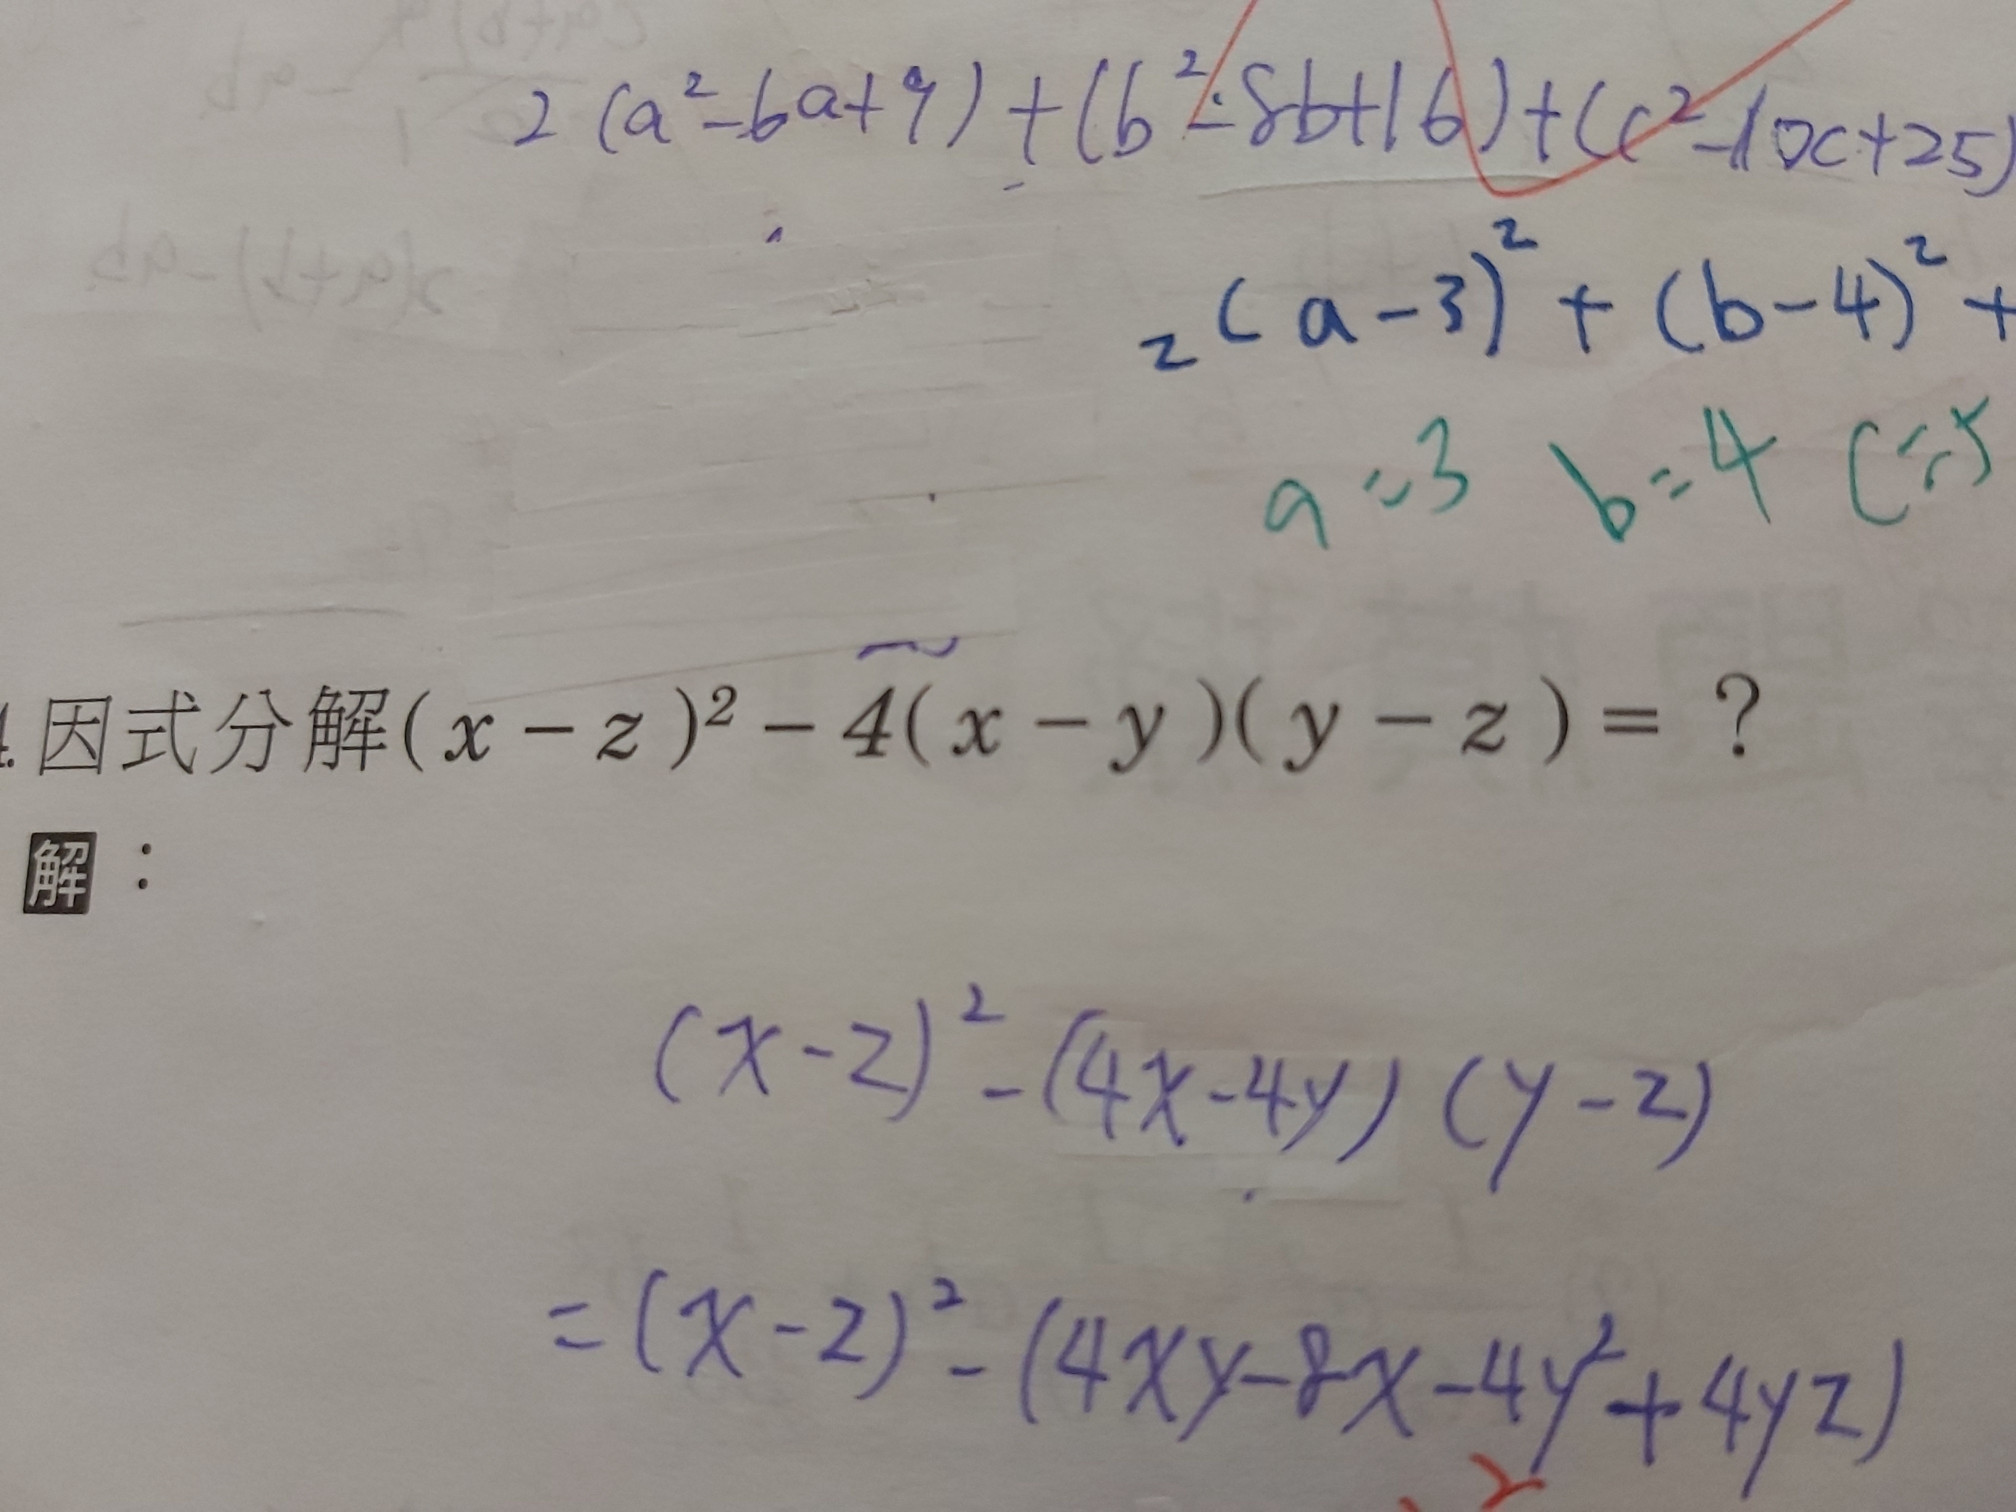 2(a²-6a+9)+(b²-8b+16)+(c²-10c+25)
2(a-3)²+(b-4)²+
a=3 b=4 c=5
4.因式分解(x-z)²-4(x-y)(y-z)=？
解：
(x-z)²-(4x-4y)(y-z)
=(x-z)²-(4xy-8x-4y²+4yz)